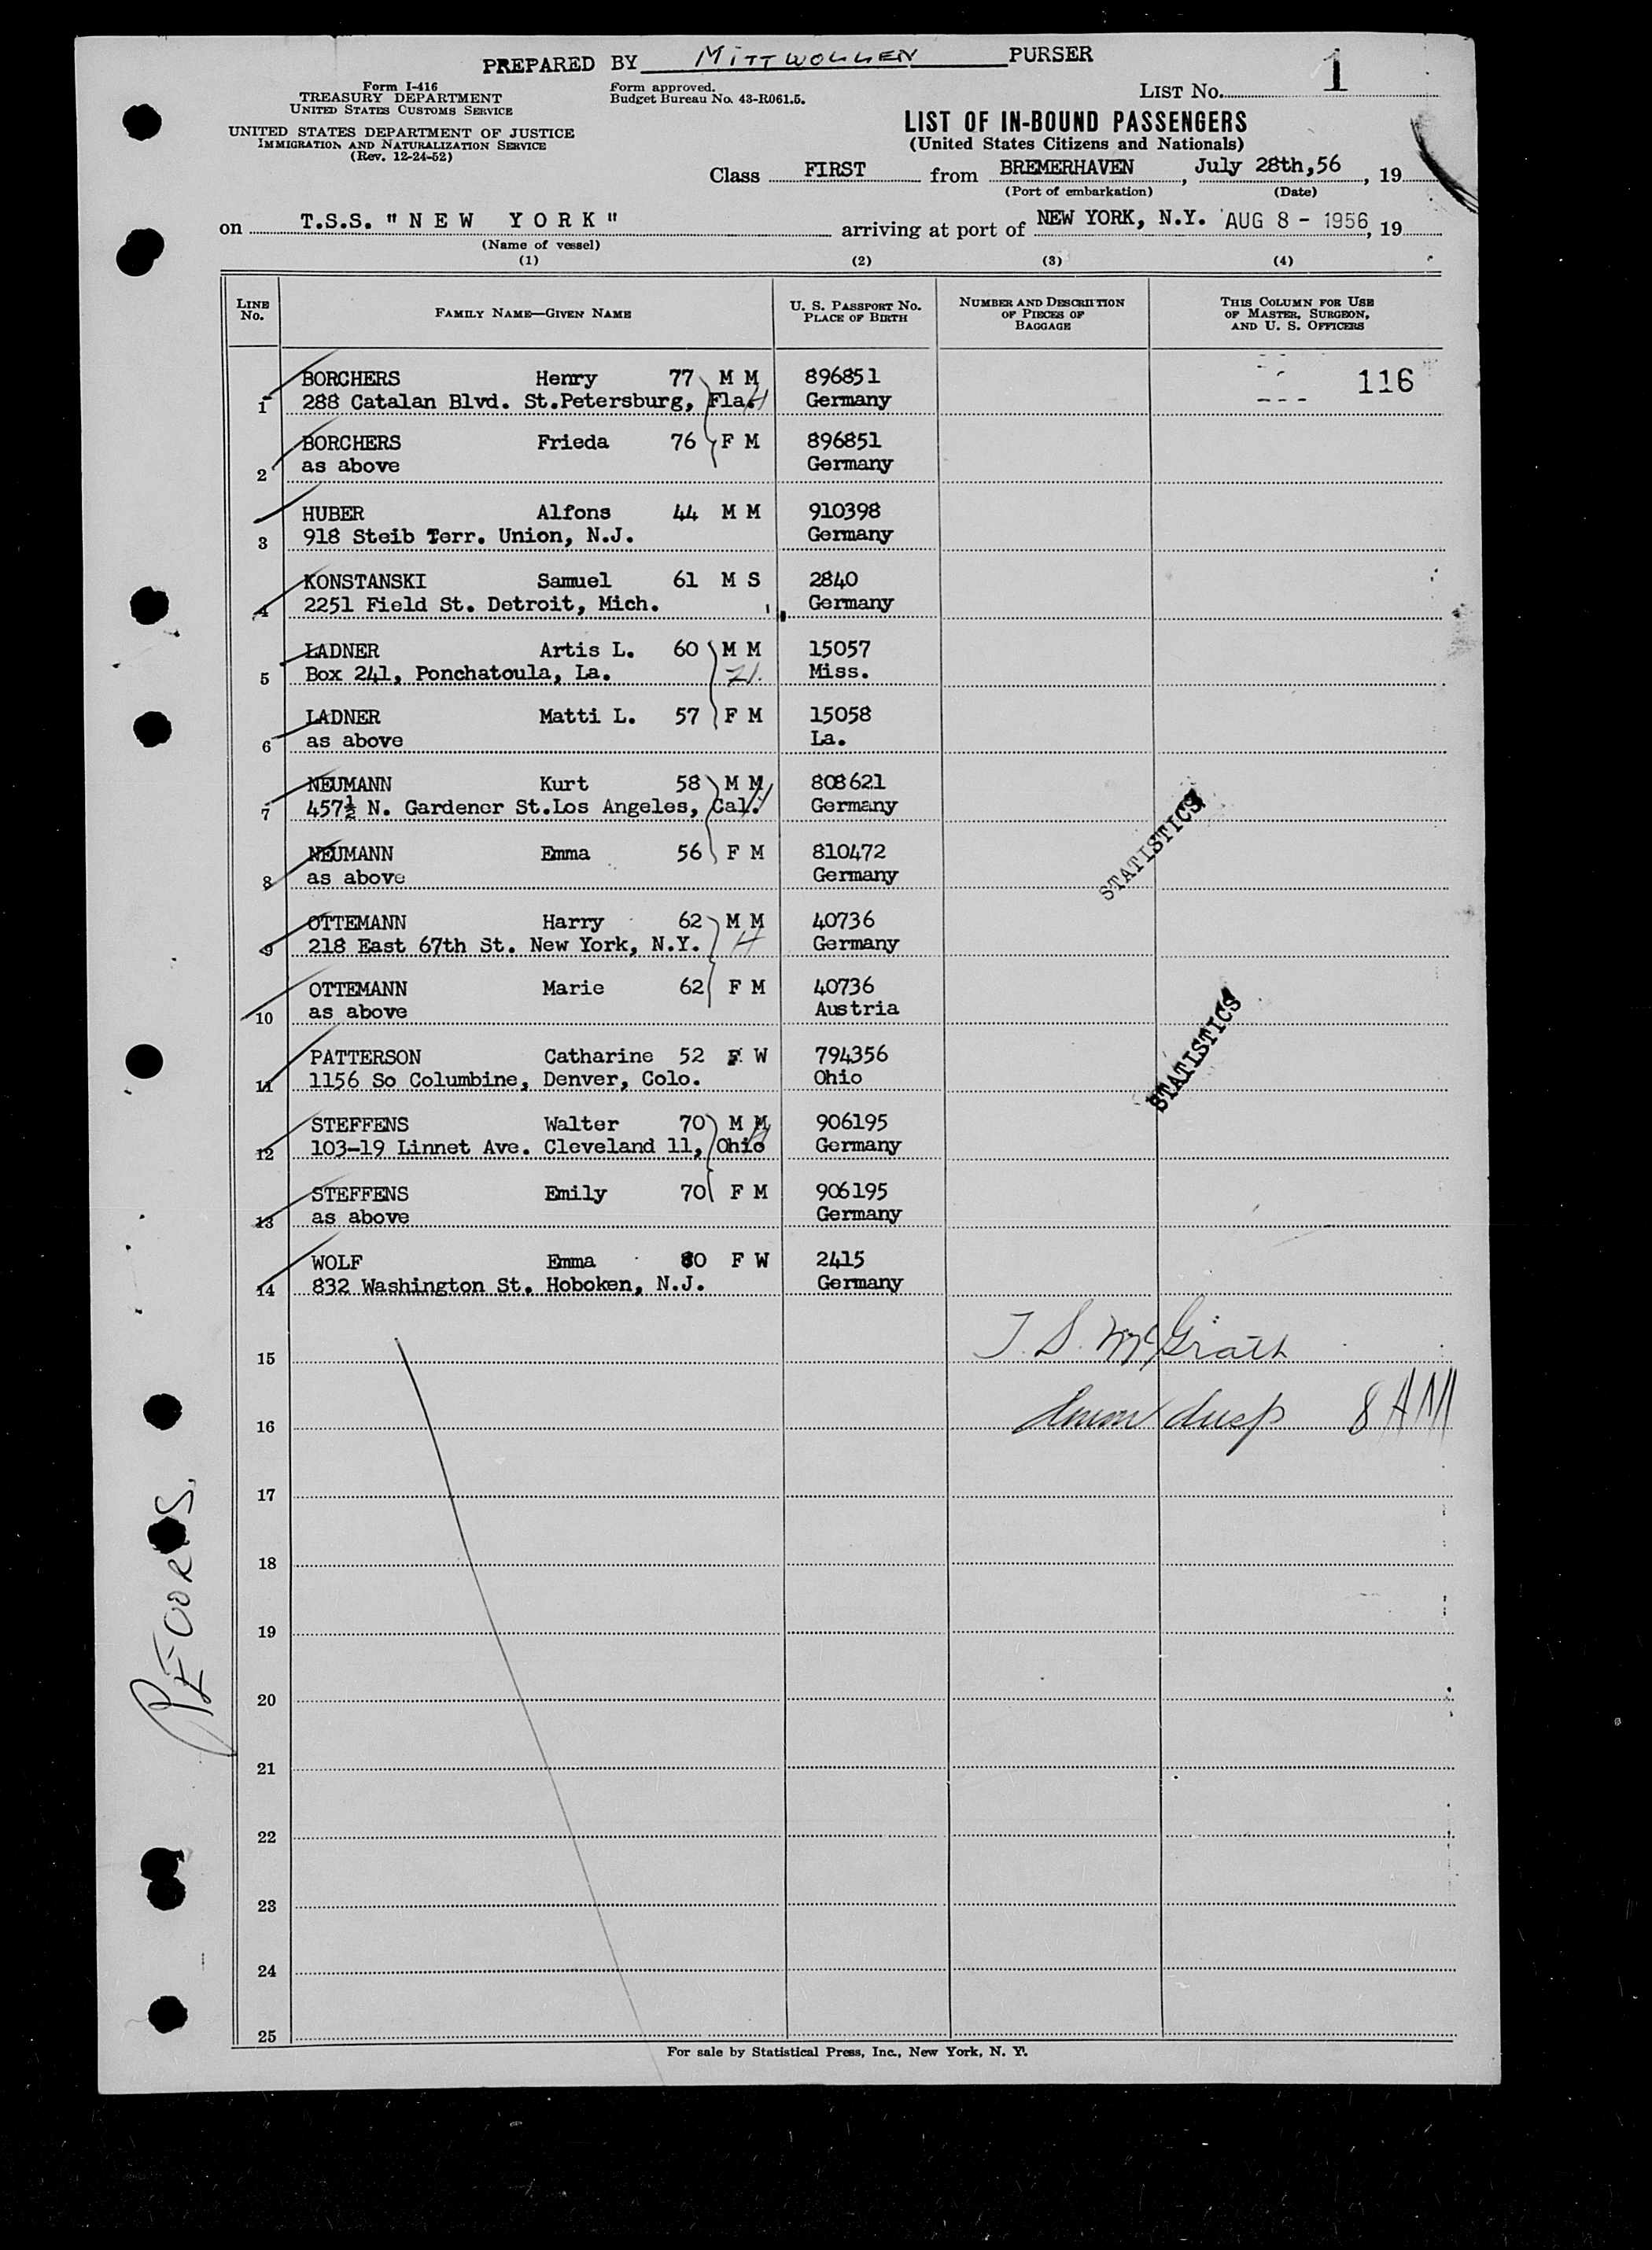 PREPARED BY MITTWOLLEN PURSER
Form I-416
TREASURY DEPARTMENT
UNITED STATES CUSTOMS SERVICE
UNITED STATES DEPARTMENT OF JUSTICE
IMMIGRATION AND NATURALIZATION SERVICE
(Rev. 12-24-52)
Form approved.
Budget Bureau No. 43-R061.5.
LIST No. 1
LIST OF IN-BOUND PASSENGERS
(United States Citizens and Nationals)
Class FIRST from BREMERHAVEN, July 28th,56, 19
(Port of embarkation) (Date)
on T.S.S. "NEW YORK" arriving at port of NEW YORK, N.Y. AUG 8 - 1956, 19
(Name of vessel)
(1) (2) (3) (4)
LINE No. FAMILY NAME—GIVEN NAME U. S. PASSPORT No. PLACE OF BIRTH NUMBER AND DESCRIPTION OF PIECES OF BAGGAGE THIS COLUMN FOR USE OF MASTER, SURGEON, AND U. S. OFFICERS
BORCHERS Henry 77 M M 896851 116
1 288 Catalan Blvd. St.Petersburg, Fla. H Germany
BORCHERS Frieda 76 F M 896851
2 as above Germany
HUBER Alfons 44 M M 910398
3 918 Steib Terr. Union, N.J. Germany
KONSTANSKI Samuel 61 M S 2840
4 2251 Field St. Detroit, Mich. Germany
LADNER Artis L. 60 M M 15057
5 Box 241, Ponchatoula, La. Miss.
LADNER Matti L. 57 F M 15058
6 as above La.
NEUMANN Kurt 58 M M 808621
7 457½ N. Gardener St.Los Angeles, Cal. Germany
NEUMANN Emma 56 F M 810472
8 as above Germany
STATISTICS
OTTEMANN Harry 62 M M 40736
9 218 East 67th St. New York, N.Y. H Germany
OTTEMANN Marie 62 F M 40736
10 as above Austria
PATTERSON Catharine 52 F W 794356
11 1156 So Columbine, Denver, Colo. Ohio
STATISTICS
STEFFENS Walter 70 M M 906195
12 103-19 Linnet Ave. Cleveland 11, Ohio Germany
STEFFENS Emily 70 F M 906195
13 as above Germany
WOLF Emma 80 F W 2415
14 832 Washington St. Hoboken, N.J. Germany
15 T. S. McGrath
16 Imm Insp 8 AM
17
18
19
20
21
22
23
24
25
For sale by Statistical Press, Inc., New York, N. Y.